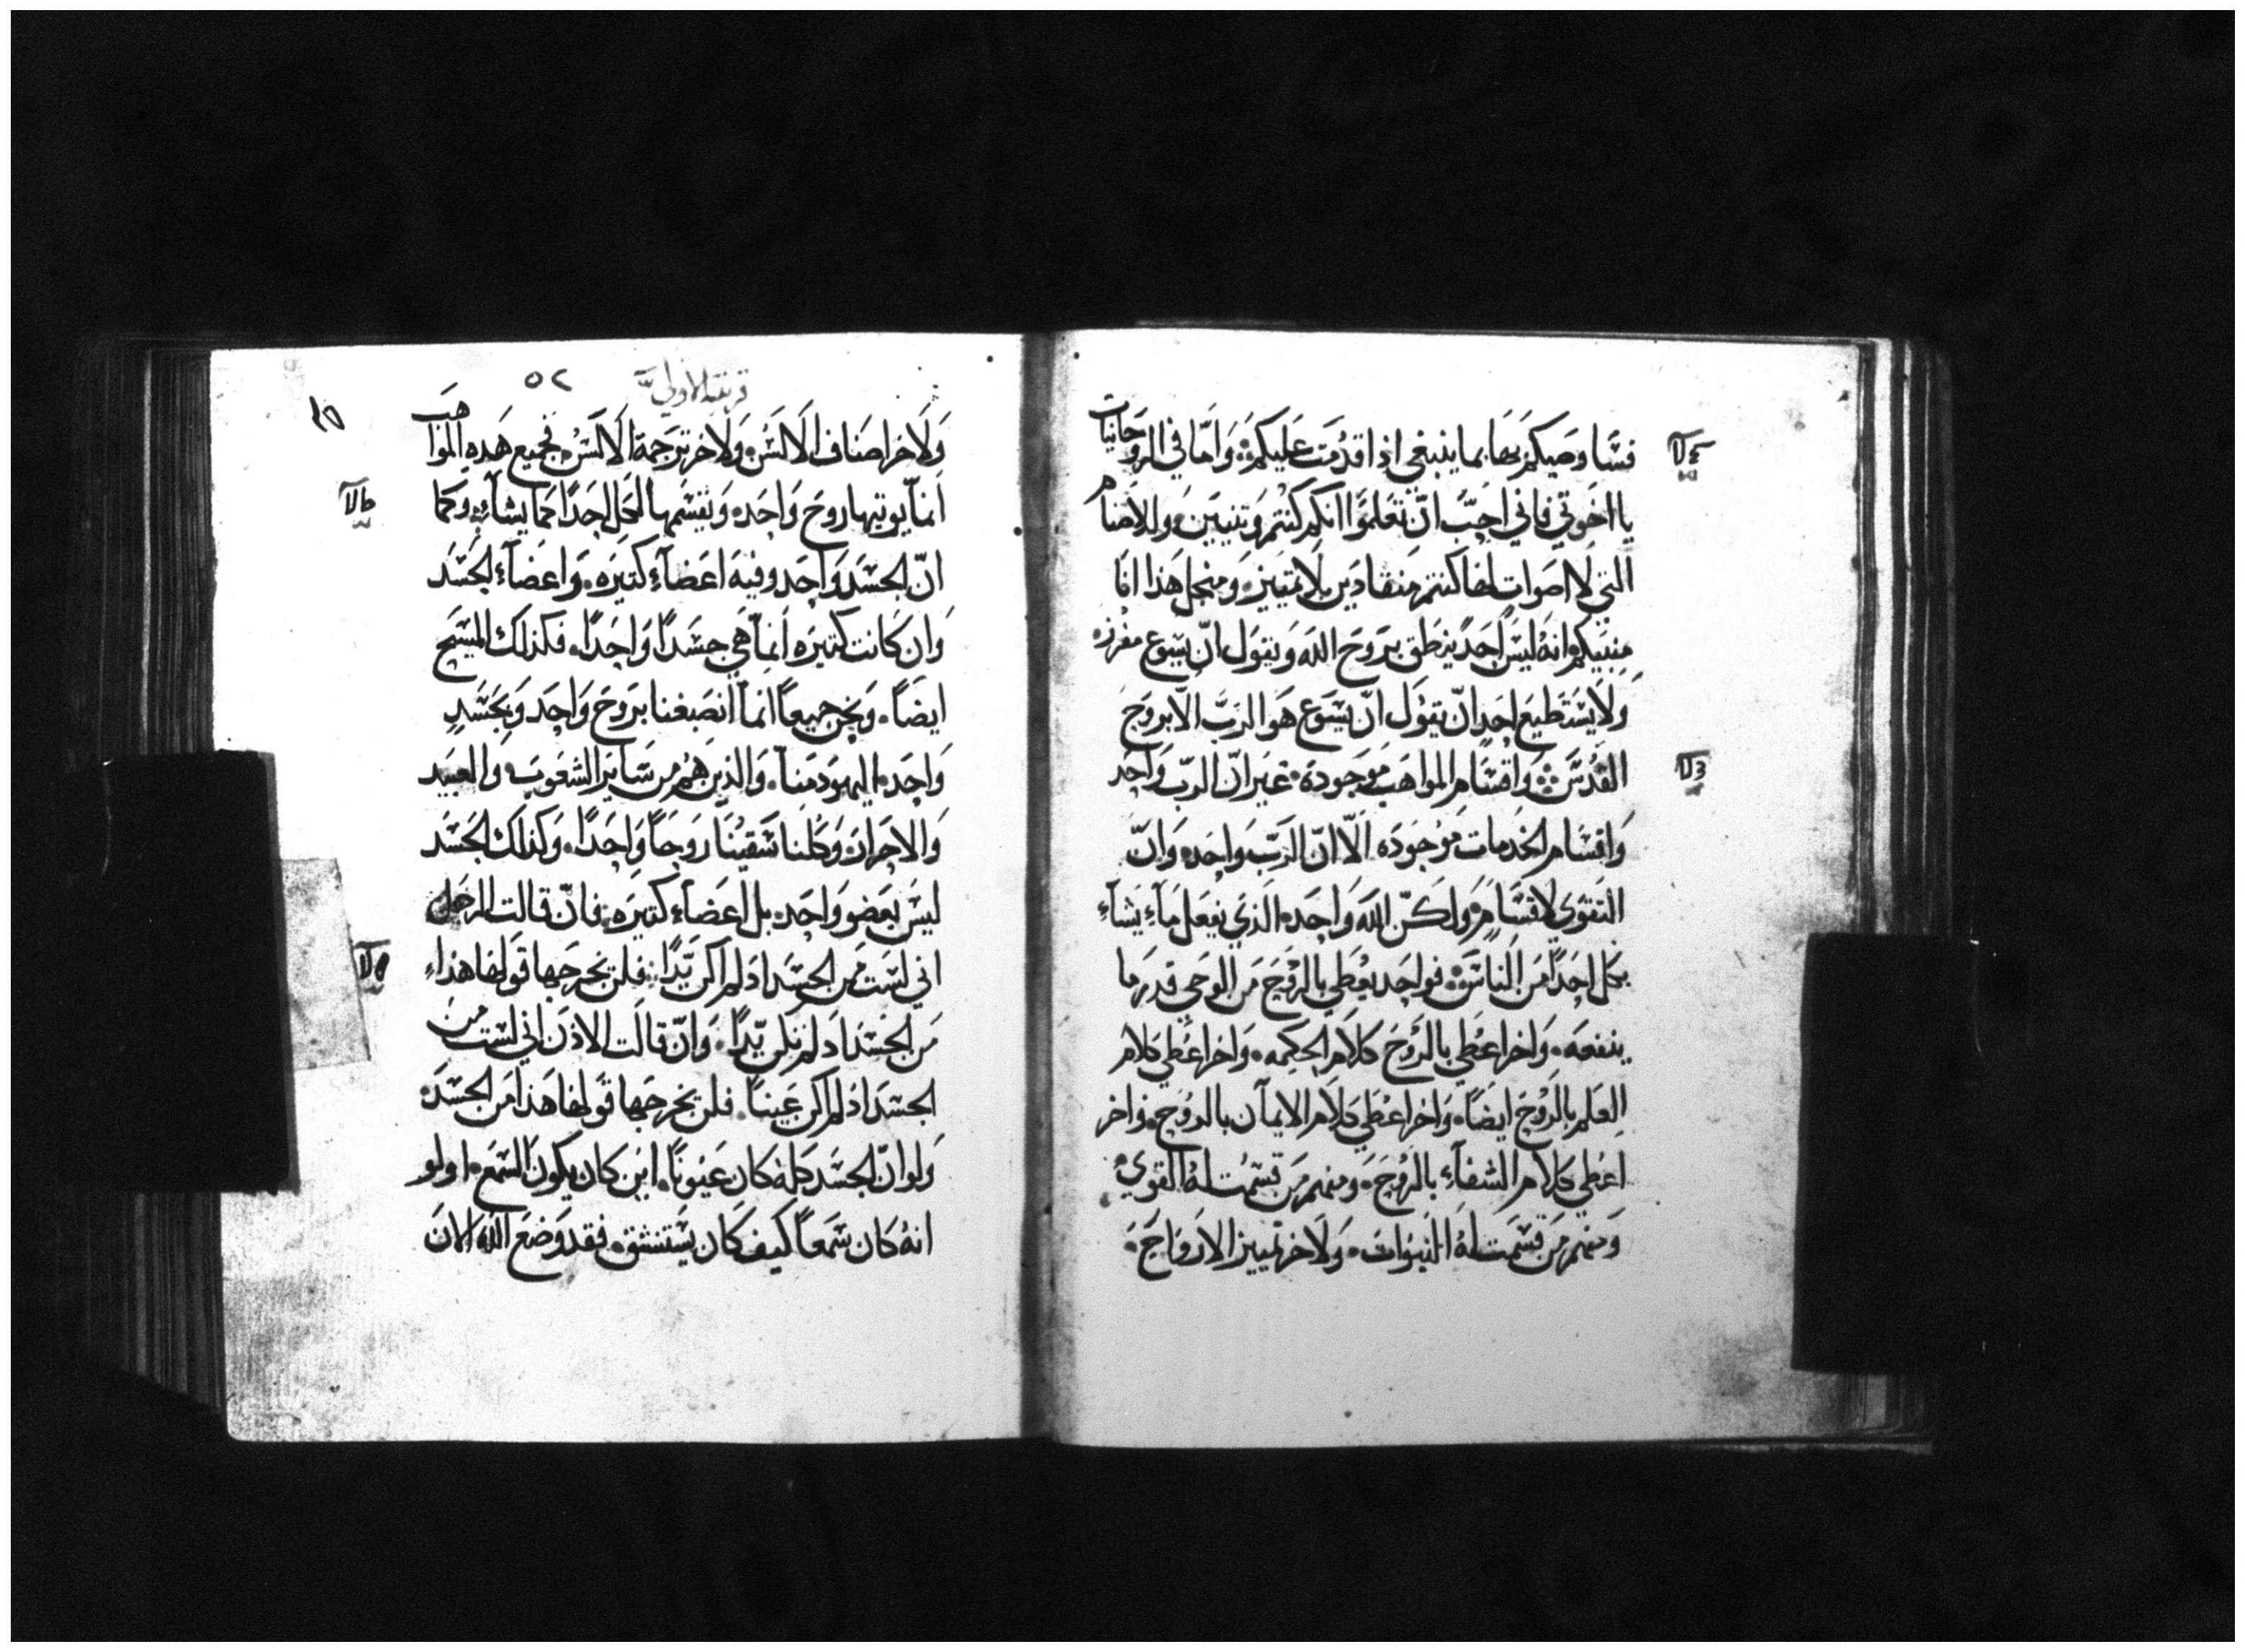 فسا وصيكم بها بما ينبغي اذا قدمت عليكم، واما في الروحانيات
يا اخوتي فاني احب ان تعلموا انكم كنتم وتنيين، وللاصنام
التي لا اصوات لها كنتم منقادين بلا تمييز، ومنجل هذا انا
منبيكم انه ليس احد ينطق بروح الله ويقول ان يسوع مفرزه
ولا يستطيع احد ان يقول ان يسوع هو الرب الا بروح
القدس ⁘ واقسام المواهب موجوده، غير ان الرب واحد
واقسام الخدمات موجوده الا ان الرب واحده وان
التقوي لاقسام، ولكن الله واحده الذي يفعل ماء يشاء
بكل احدا من الناس، فواحد يعطي بالروح من الوحي قدر ما
ينفعه، واخر اعطي بالروح كلام الحكمه، واخر اعطي كلام
العلم بالروح ايضا، واخر اعطي كلام الايمان بالروح، واخر
اعطي كلام الشفاء بالروح، ومنهم من قسمت له القوي،
ومنهم من قسمت له النبوات، ولاخر تمييز الارواح،
قرنتيه الاولي
٥٢
ولاخر اصناف الالسن، ولاخر ترجمة الالسن، فجميع هذه المواهب
انما يوتيها روح واحده، ويقسمها لكل احدا كما يشاء، وكما
ان الجسد واحد وفيه اعضاء كثيره، واعضاء الجسد
وان كانت كثيره انما هي جسدا واحدا، فكذلك المسيح
ايضا، ونحن جميعا انما انصبغنا بروح واحد وبجسد
واحده اليهود منا، والذين هم من ساير الشعوب والعبيد
والاحرار، وكلنا سقينا روحا واحدا، وكذلك الجسد
ليس بعضو واحد، بل اعضاء كثيره، فان قالت الرجل
اني لست من الجسد اذ لم اكن يدا، فلن يخرجها قولها هذا
من الجسد اذ لم تكن يدا، وان قالت الاذن اني لست من
الجسد اذ لم اكن عينا، فلن يخرجها قولها هذا من الجسد،
ولو ان الجسد كله كان عيونا، اين كان يكون السمع، او لو
انه كان سمعا كيف كان يستنشق، فقد وضع الله الان